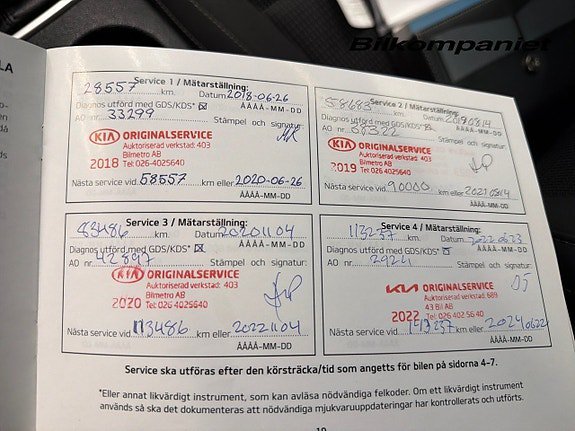 Bilkompaniet
LA
Service 1 / Mätarställning:
28557 km. Datum 2018-06-26
Diagnos utförd med GDS/KDS* ☒ ÅÅÅÅ-MM-DD
AO nr. 33299 Stämpel och signatur:
KIA ORIGINALSERVICE
Auktoriserad verkstad: 403
2018 Bilmetro AB
Tel: 026-4025640
Nästa service vid 58557 km eller 2020-06-26
ÅÅÅÅ-MM-DD
Service 2 / Mätarställning:
58683 km. Datum 20190814
Diagnos utförd med GDS/KDS* ☒ ÅÅÅÅ-MM-DD
AO nr. Stämpel och signatur:
KIA ORIGINALSERVICE
Auktoriserad verkstad: 403
2019 Bilmetro AB
Tel: 026-4025640
Nästa service vid 90000 km eller 20210814
ÅÅÅÅ-MM-DD
Service 3 / Mätarställning:
83486 km. Datum 20201104
Diagnos utförd med GDS/KDS* ☒ ÅÅÅÅ-MM-DD
AO nr. 42897 Stämpel och signatur:
KIA ORIGINALSERVICE
Auktoriserad verkstad: 403
Bilmetro AB
2020 Tel: 026 4025640
Nästa service vid 113486 km eller 20221104
ÅÅÅÅ-MM-DD
Service 4 / Mätarställning:
113257 km. Datum 20220623
Diagnos utförd med GDS/KDS* ÅÅÅÅ-MM-DD
AO nr. 2924 Stämpel och signatur:
KIA ORIGINALSERVICE
Auktoriserad verkstad: 689
43 Bil AB
2022 Tel: 026 4025640
Nästa service vid 143257 km eller 20240622
ÅÅÅÅ-MM-DD
Service ska utföras efter den körsträcka/tid som angetts för bilen på sidorna 4-7.
*Eller annat likvärdigt instrument, som kan avläsa nödvändiga felkoder. Om ett likvärdigt instrument
används så ska det dokumenteras att nödvändiga mjukvaruuppdateringar har kontrollerats och utförts.